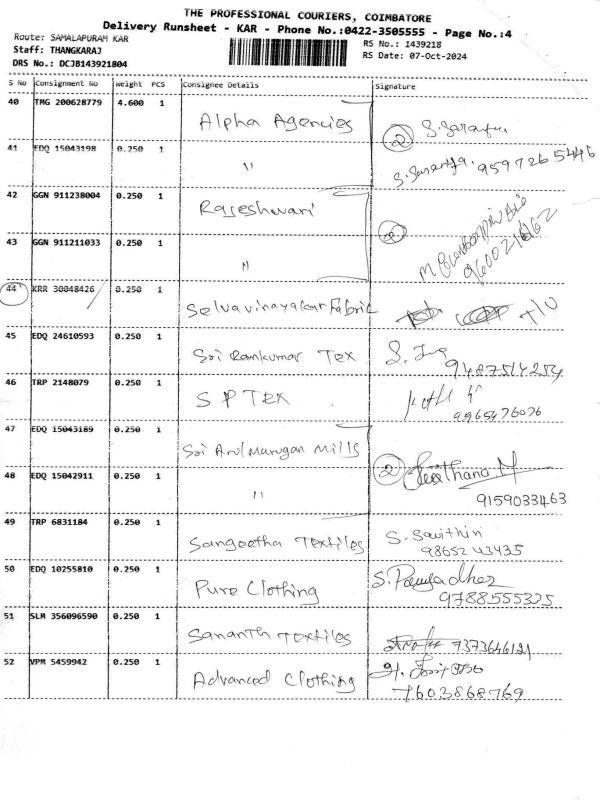 THE PROFESSIONAL COURIERS, COIMBATORE
Delivery Runsheet - KAR - Phone No.:0422-3505555 - Page No.:4
Route: SAMALAPURAM KAR
RS No.: 1439218
Staff: THANGKARAJ
RS Date: 07-Oct-2024
DRS No.: DCJB143921804
S No Consignment No weight PCS Consignee Details Signature
40 TMG 200628779 4.600 1 Alpha Agencies 2
41 EDQ 15043198 0.250 1 " S. Saranya. 9597265446
42 GGN 911238004 0.250 1 Rajeshwari 2
43 GGN 911211033 0.250 1 "
44 KRR 30048426 0.250 1 Selvavinayakar Fabric
45 EDQ 24610593 0.250 1 Sri Ramkumar Tex 9487514254
46 TRP 2148079 0.250 1 S P TEX 9965476076
47 EDQ 15043189 0.250 1 Sri Arulmurugan Mills
48 EDQ 15042911 0.250 1 " 2 9159033463
49 TRP 6831184 0.250 1 Sangeetha Textiles S. Savithiri
9865243435
50 EDQ 10255810 0.250 1 Pure Clothing 9788555325
51 SLM 356096590 0.250 1 Sananth Textiles 7373646121
52 VPM 5459942 0.250 1 Advanced Clothing
7603868769